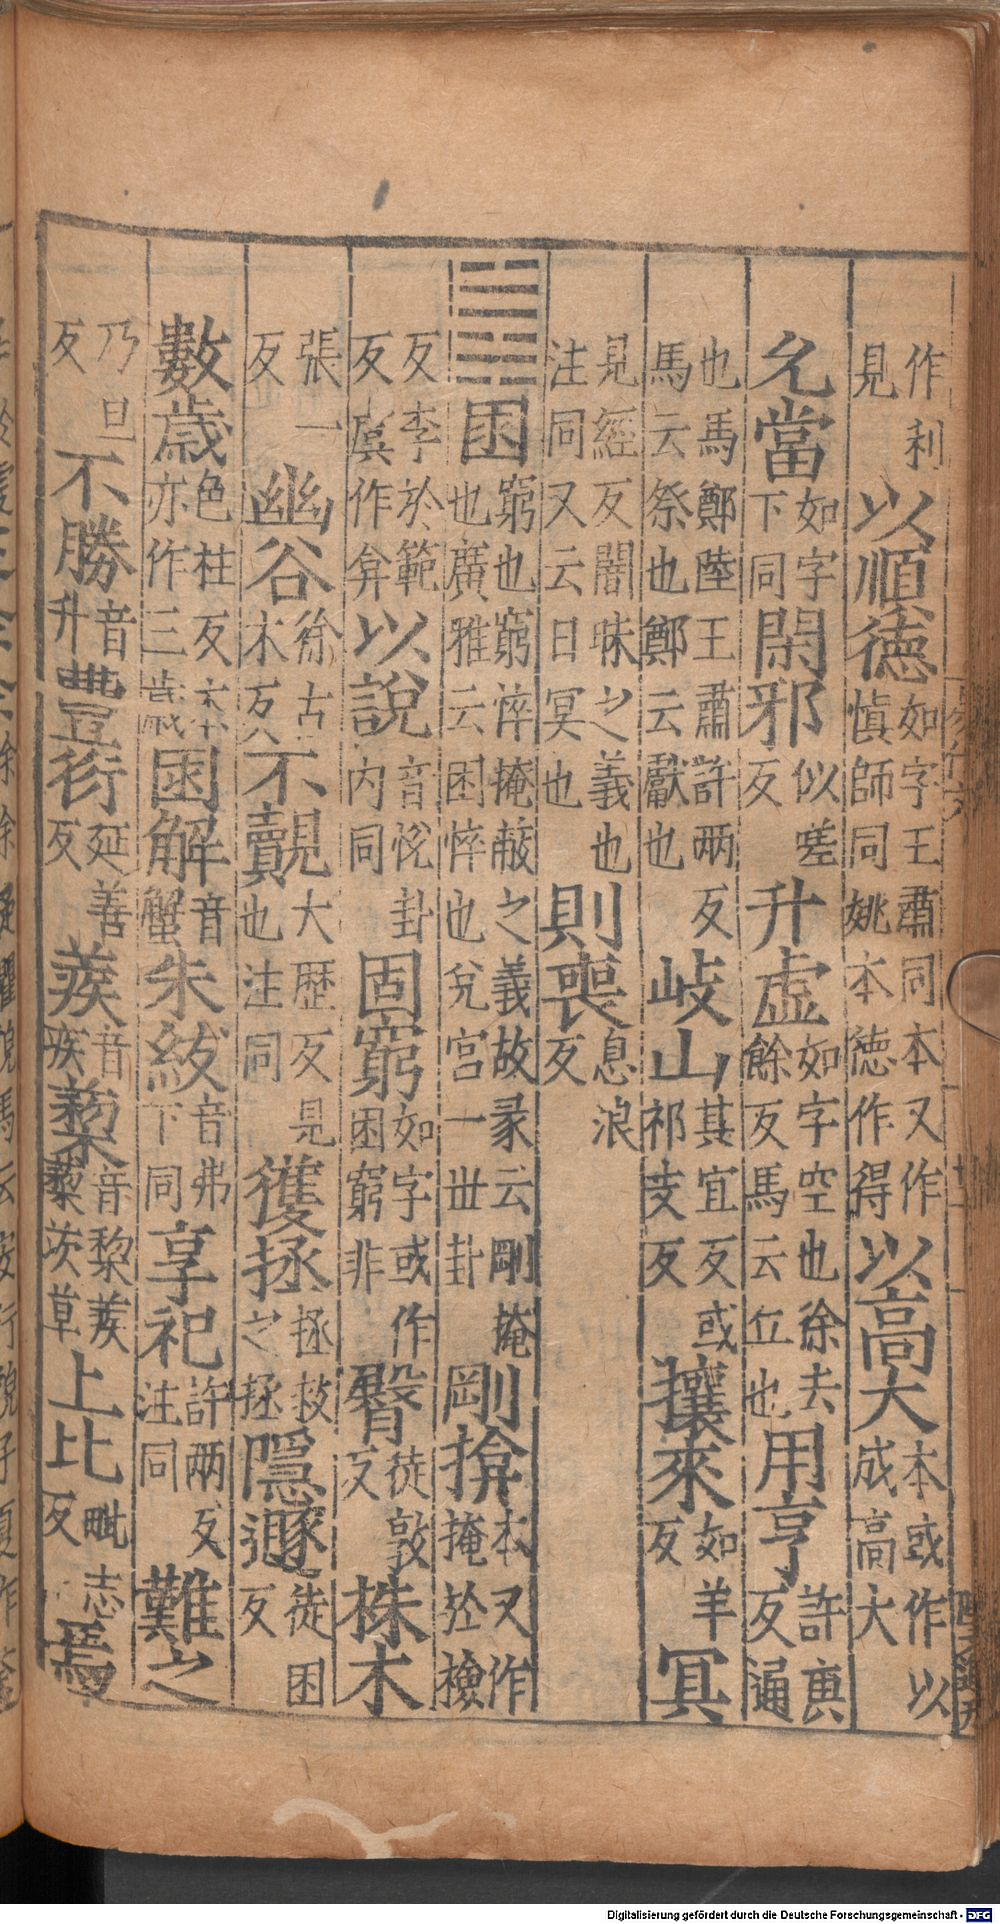 作利見以順德如字王肅同本又作慎師同姚本德作得以高大本或作以成高大
允當如字下同閑邪似嗟反升虛如字空也徐去餘反馬云丘也用亨許庚反通
也馬鄭陸王肅許兩反馬云祭也鄭云獻也岐山其宜反或祁支反攘來如羊反冥
見經反闇昧之義也注同又云日冥也則喪息浪反
䷮困窮也窮淬掩蔽之義故彖云剛掩也廣雅云困悴也兊宮一世卦剛揜本又作掩扵檢
反李於範反虞作弇以說音悅卦内同固窮如字或作困窮非臀徒敦反株木
張一反幽谷徐古木反不覿大歷反是也注同獲拯拯救之拯隱遯徒困反
數歳色柱反本亦作三歳困解音蟹朱紱音弗下同享祀許兩反注同難之
乃旦反不勝音升豐衍延善反蒺音疾蔾音黎蒺藜茨草上比毗志反焉
Digitalisierung gefördert durch die Deutsche Forschungsgemeinschaft - DFG